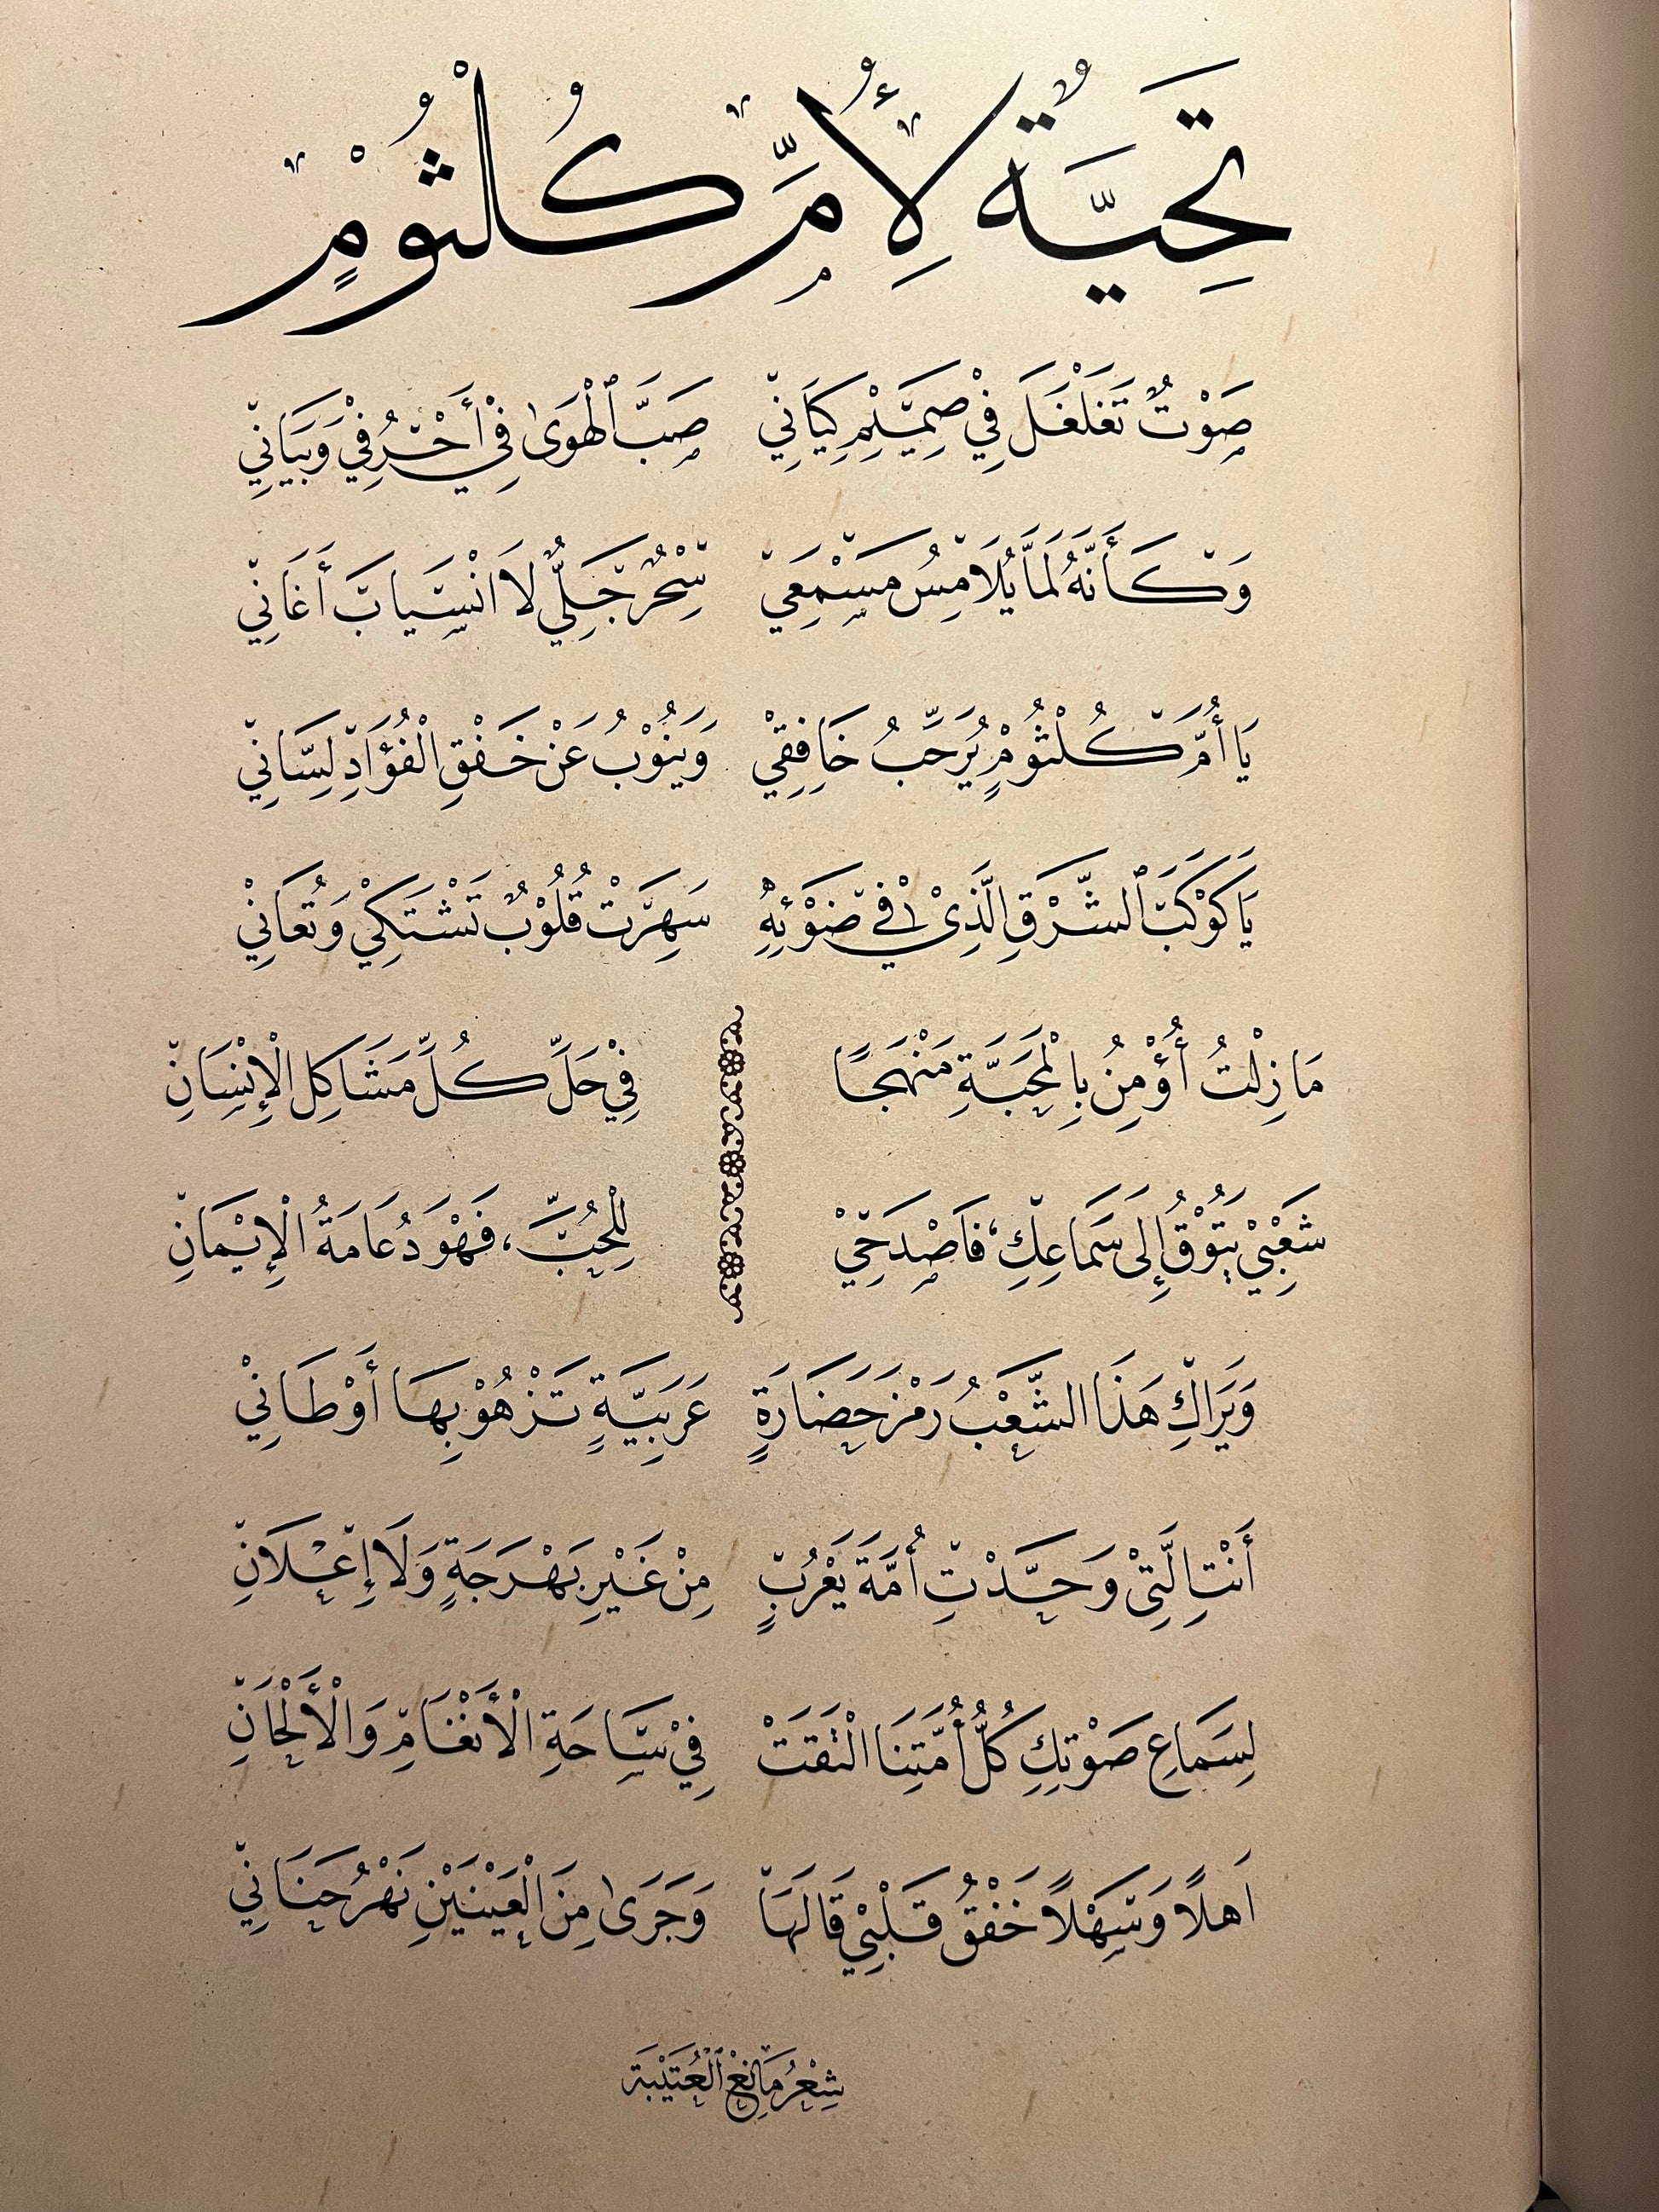 تَحِيَّةٌ لِأُمِّ كُلْثُومٍ
صَوْتٌ تَغَلْغَلَ فِيْ صَمِيْمِ كِيَانِيْ صَبَّ ٱلْهَوَىٰ فِيْ أَحْرُفِيْ وَبَيَانِيْ
وَكَأَنَّهُ لَمَّا يُلَامِسُ مَسْمَعِيْ سِحْرٌ جَلِيٌّ لَا انْسِيَابَ أَغَانِيْ
يَا أُمَّ كُلْثُوْمٍ يُرَحِّبُ خَافِقِيْ وَيَنُوْبُ عَنْ خَفْقِ الْفُؤَادِ لِسَانِيْ
يَا كَوْكَبَ ٱلشَّرْقِ الَّذِيْ فِيْ ضَوْئِهِ سَهِرَتْ قُلُوْبٌ تَشْتَكِيْ وَتُعَانِيْ
مَا زِلْتُ أُؤْمِنُ بِالْمَحَبَّةِ مَنْهَجًا فِيْ حَلِّ كُلِّ مَشَاكِلِ الْإِنْسَانِ
شَعْبِيْ يَتُوْقُ إِلَى سَمَاعِكِ، فَاصْدَحِيْ لِلْحُبِّ، فَهْوَ دُعَامَةُ الْإِيْمَانِ
وَيَرَاكِ هَذَا الشَّعْبُ رَمْزَ حَضَارَةٍ عَرَبِيَّةٍ تَزْهُوْ بِهَا أَوْطَانِيْ
أَنْتِ الَّتِيْ وَحَّدْتِ أُمَّةَ يَعْرُبٍ مِنْ غَيْرِ بَهْرَجَةٍ وَلَا إِعْلَانِ
لِسَمَاعِ صَوْتِكِ كُلُّ أُمَّتِنَا الْتَقَتْ فِيْ سَاحَةِ الْأَنْغَامِ وَالْأَلْحَانِ
اَهلًا وَسَهْلًا خَفْقُ قَلْبِيْ قَالَهَا وَجَرَىٰ مِنَ الْعَيْنَيْنِ نَهْرُ حَنَانِيْ
شِعْرُ مَانِعْ ٱلْعُتَيْبَة